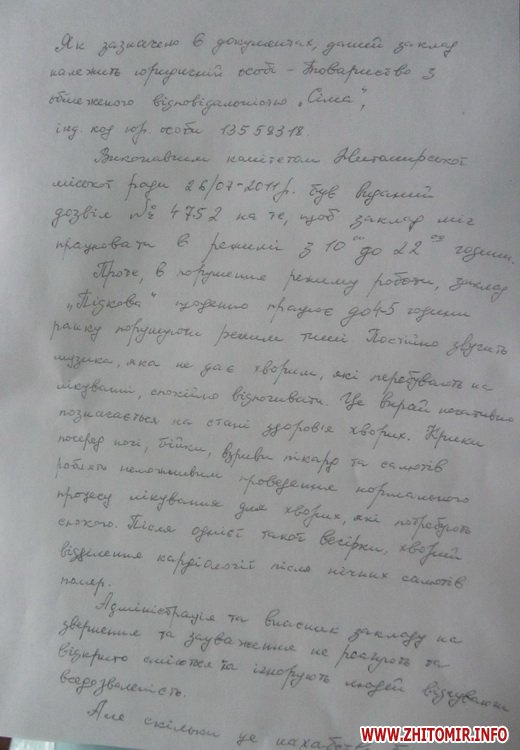 Як зазначено в документах, даний заклад
належить юридичній особі - Товариство з
обмеженого відповідальністю „Сіма",
інд. код юр. особи 13559318.
Виконавчим комітетом Житомирської
міської ради 26/07-2011р. був виданий
дозвіл № 4752 на те, щоб заклад міг
працювати в режимі з 10 00 до 22 00 години.
Проте, в порушення режиму роботи, заклад
„Підкова" щоденно працює до 4-5 години
ранку порушуючи режим тиші Постійно звучить
музика, яка не дає хворим, які перебувають на
лікуванні, спокійно відпочивати. Це вкрай негативно
позначається на стані здоров'я хворих. Крики
посеред ночі, бійки, взриви пікард та салютів
роблять неможливим проведення нормального
процесу лікування для хворих, які потребують
спокою. Після однієї такої вечірки, хворий
відділення кардіології після нічних салютів
помер.
Адміністрація та власник закладу на
звернення та зауваження не реагують та
відкрито сміються та ігнорують людей відчуваючи
вседозволеність.
Але скільки це
WWW.ZHITOMIR.INFO